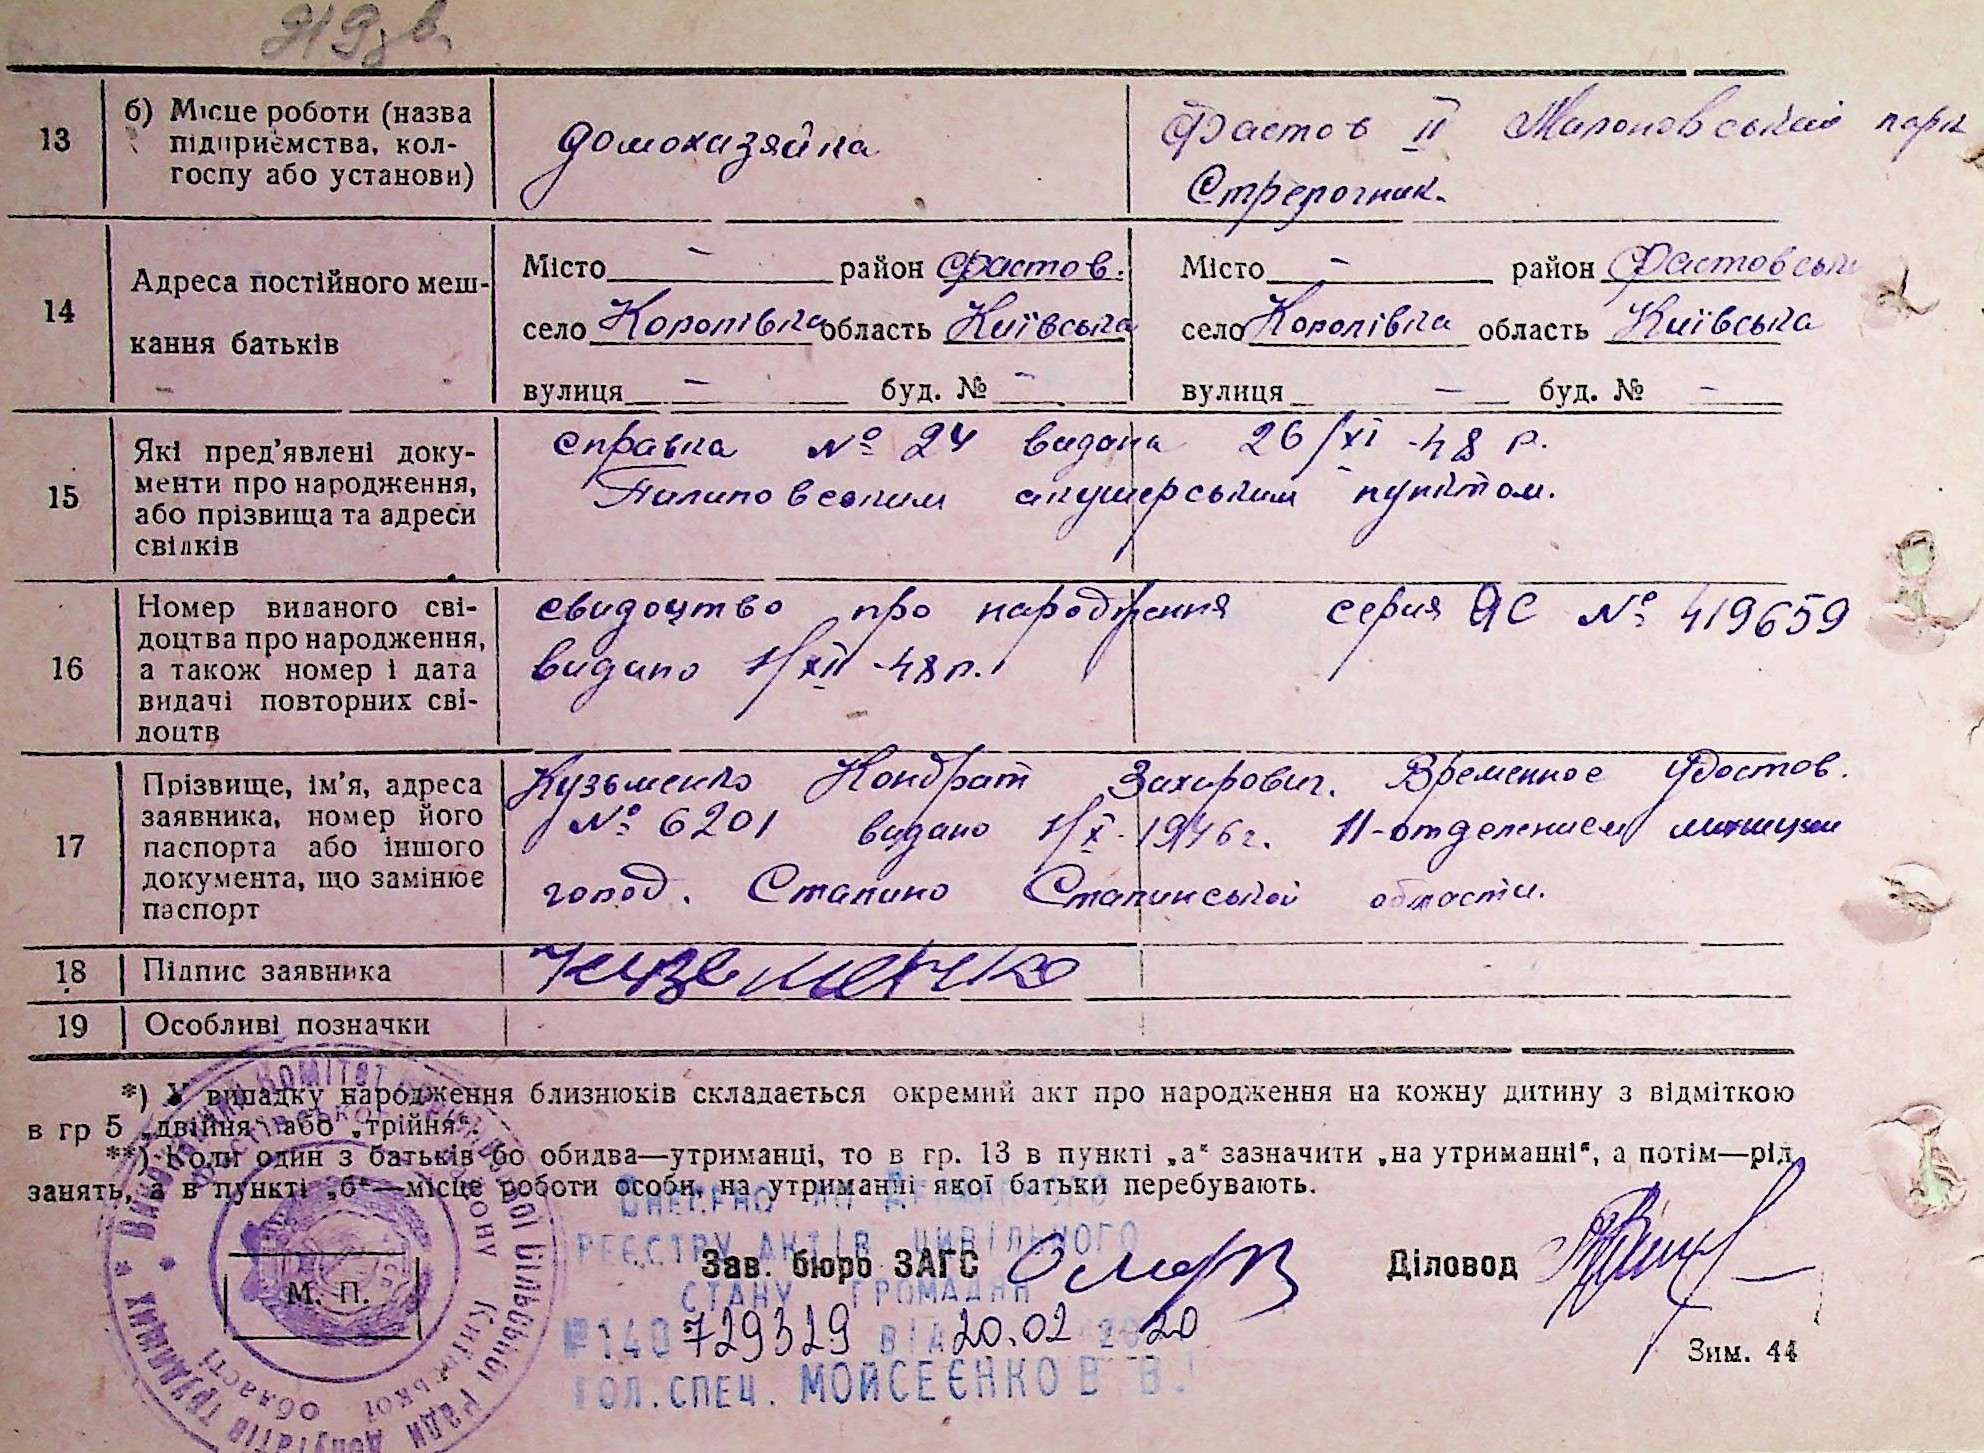 13
б) Місце роботи (назва
підприємства, кол-
госпу або установи)
домохазяйка
Фастов II Малоновський парк
Стрелочник.
14
Адреса постійного меш-
кання батьків
Місто - район Фастов.
село Королівка область Київська
вулиця - буд. № -
Місто - район Фастовськ
село Королівка область Київська
вулиця - буд. № -
15
Які пред'явлені доку-
менти про народження,
або прізвища та адреси
свідків
справка № 24 видана 26/XI-48 р.
акушерським пунктом.
16
Номер виданого сві-
доцтва про народження,
а також номер і дата
видачі повторних сві-
доцтв
свидоцтво про народження серия ЯС № 419659
видано 1/XII-48 р.
17
Прізвище, ім'я, адреса
заявника, номер його
паспорта або іншого
документа, що замінює
паспорт
Кузьменко Кондрат Захарович. Временное Удостов.
№ 6201 видано 1/X-1946 г. 11-отделением милиции
город. Сталино Сталинської области.
18
Підпис заявника
Кузьменко
19
Особливі позначки
*) У випадку народження близнюків складається окремий акт про народження на кожну дитину з відміткою
в гр 5 „двійня“ або „трійня“.
**) Коли один з батьків бо обидва—утриманці, то в гр. 13 в пункті „а“ зазначити „на утриманні“, а потім—рід
занять, а в пункті „б“—місце роботи особи, на утриманні якої батьки перебувають.
ВНЕСЕНО ДО ДЕРЖАВНОГО
РЕЄСТРУ АКТІВ ЦИВІЛЬНОГО
СТАНУ ГРОМАДЯН
№ 140729329 ВІД 20.02 2020
ГОЛ. СПЕЦ. МОЙСЕЄНКО В В.
Зав. бюро ЗАГС
Діловод
М. П.
Зим. 44